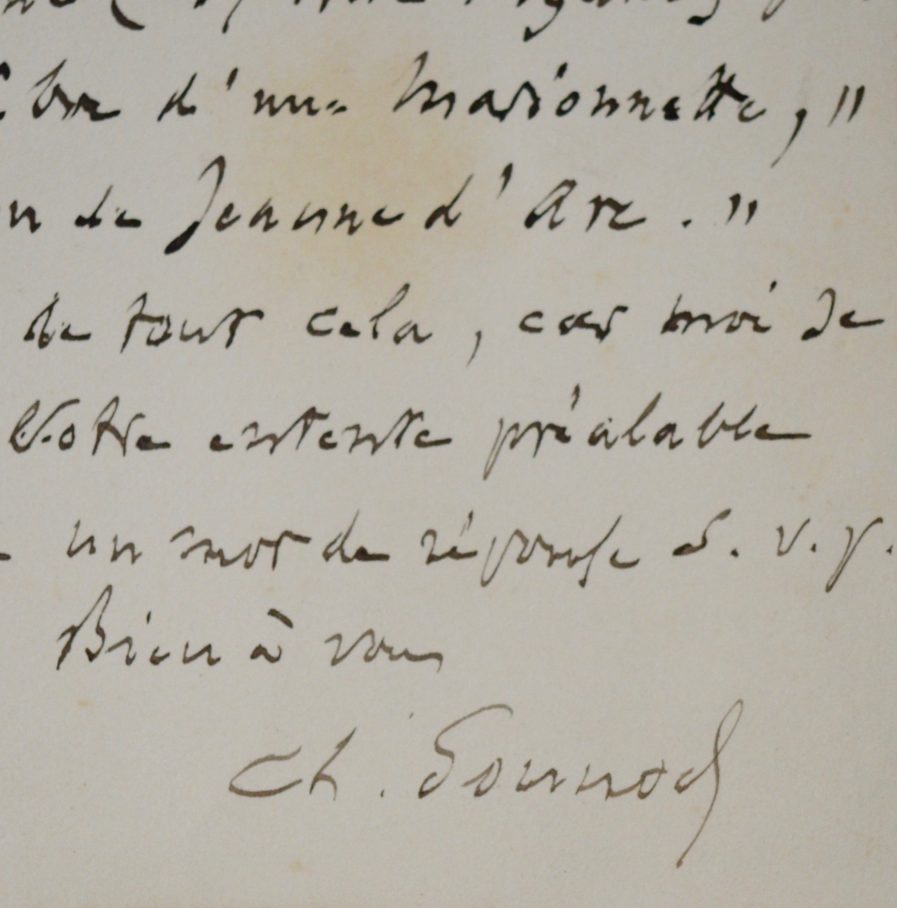 d'une Marionnette, "
de Jeanne d'Arc. "
de tout cela, car moi je
Votre entente préalable
un mot de réponse S. v. p.
Bien à vous
Ch. Gounod